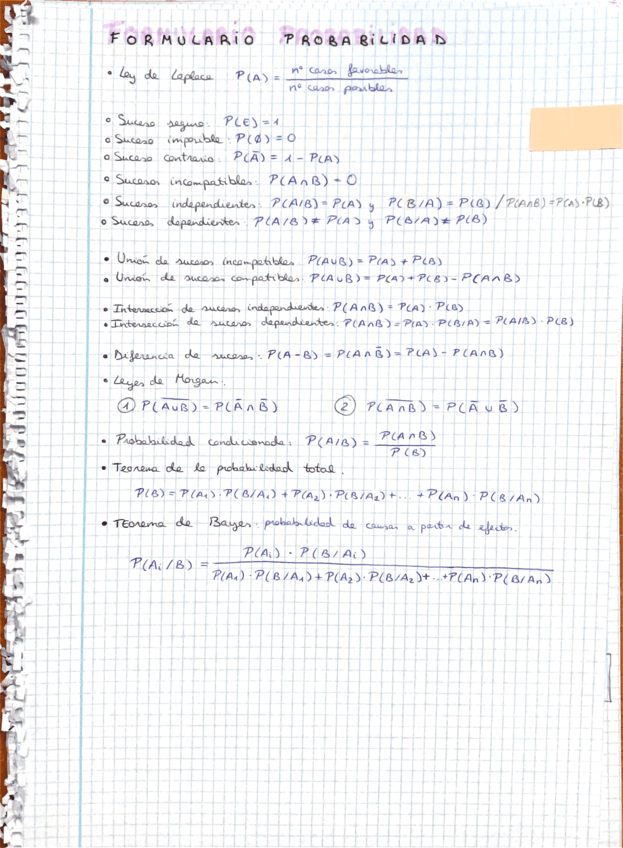 FORMULARIO PROBABILIDAD
• Ley de Laplace P(A) = nº casos favorables / nº casos posibles
• Suceso seguro: P(E) = 1
• Suceso imposible: P(Ø) = 0
• Suceso contrario: P(Ā) = 1 - P(A)
• Sucesos incompatibles: P(A∩B) = 0
• Sucesos independientes: P(A/B) = P(A) y P(B/A) = P(B) / P(A∩B) = P(A)·P(B)
• Sucesos dependientes: P(A/B) ≠ P(A) y P(B/A) ≠ P(B)
• Unión de sucesos incompatibles: P(A∪B) = P(A) + P(B)
• Unión de sucesos compatibles: P(A∪B) = P(A) + P(B) - P(A∩B)
• Intersección de sucesos independientes: P(A∩B) = P(A) · P(B)
• Intersección de sucesos dependientes: P(A∩B) = P(A) · P(B/A) = P(A/B) · P(B)
• Diferencia de sucesos: P(A-B) = P(A∩B̄) = P(A) - P(A∩B)
• Leyes de Morgan.
① P(A̅∪̅B̅) = P(Ā∩B̄) ② P(A̅∩̅B̅) = P(Ā∪B̄)
• Probabilidad condicionada: P(A/B) = P(A∩B) / P(B)
• Teorema de la probabilidad total.
P(B) = P(A₁)·P(B/A₁) + P(A₂)·P(B/A₂) + ... + P(An)·P(B/An)
• TEorema de Bayes: probabilidad de causas a partir de efectos.
P(Ai/B) = P(Ai) · P(B/Ai) / P(A₁)·P(B/A₁) + P(A₂)·P(B/A₂) + ... + P(An)·P(B/An)